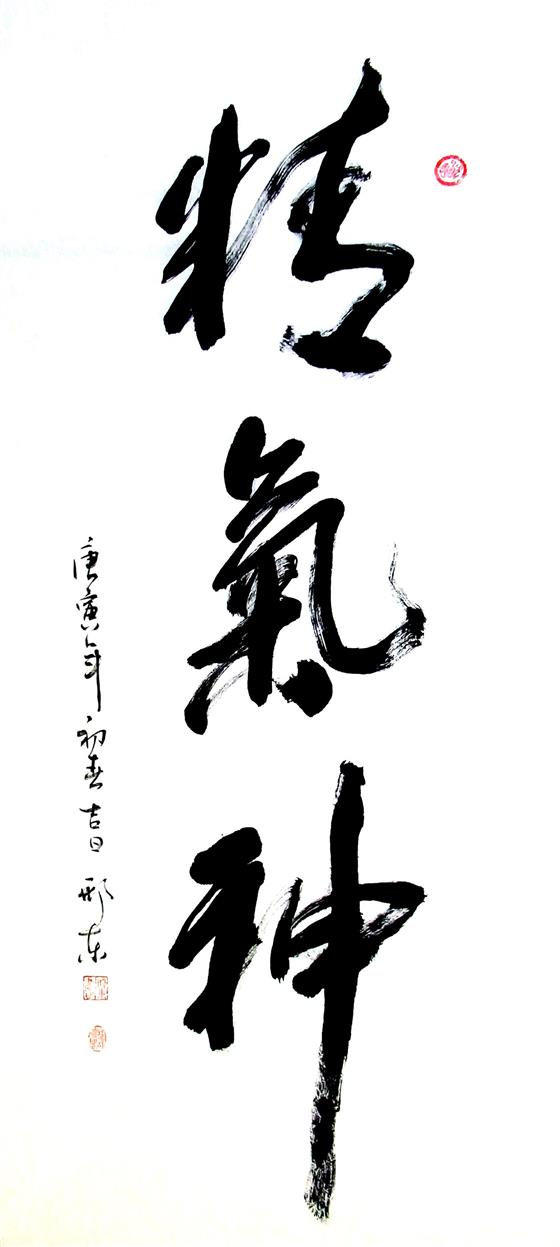 精氣神
庚寅年初春吉日邢东